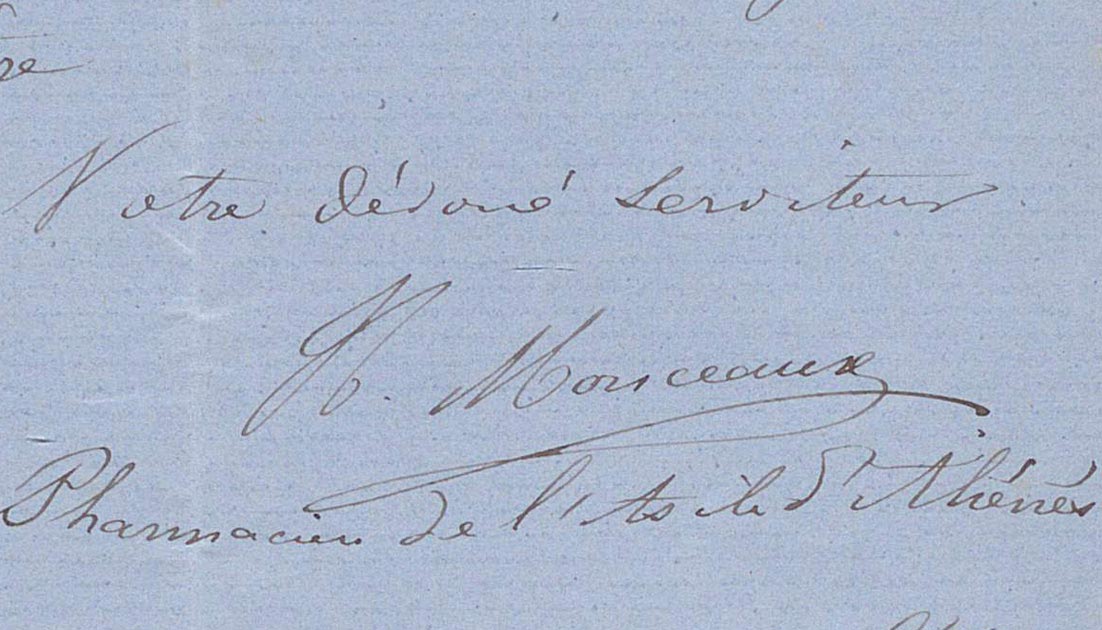 Votre dévoué serviteur
H. Monceaux
Pharmacien de l'Asile d'Aliénés